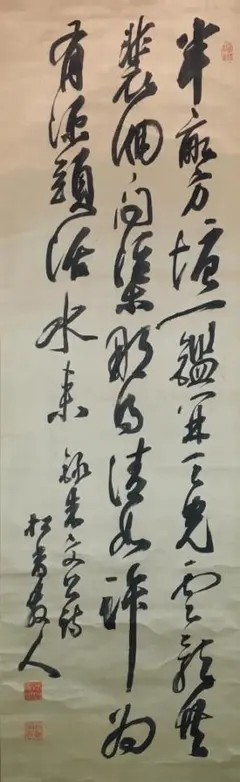 半畝方塘一鑑開天光雲影共
裴徊問渠那得清如許為
有源頭活水來
錄朱文公詩
松人